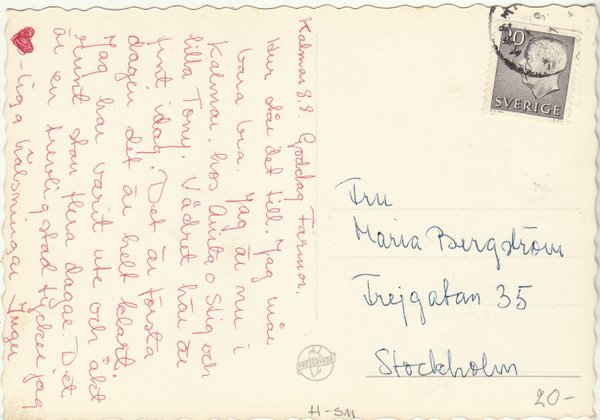 Kalmar 8.8. Goddag Farmor.
Hur står det till. Jag mår
bara bra. Jag är nu i
Kalmar, hos Anita o Stig och
lilla Tony. Vädret här är
fint idag. Det är första
dagen det är helt klart.
Jag har varit ute och åkt
runt stan flera dagar. Det
är en trevlig stad tycker jag
-liga hälsningar Inger
20
SVERIGE
Fru
Maria Bergström
Frejgatan 35
Stockholm
PRESSBYRÅN
20-
H-SM